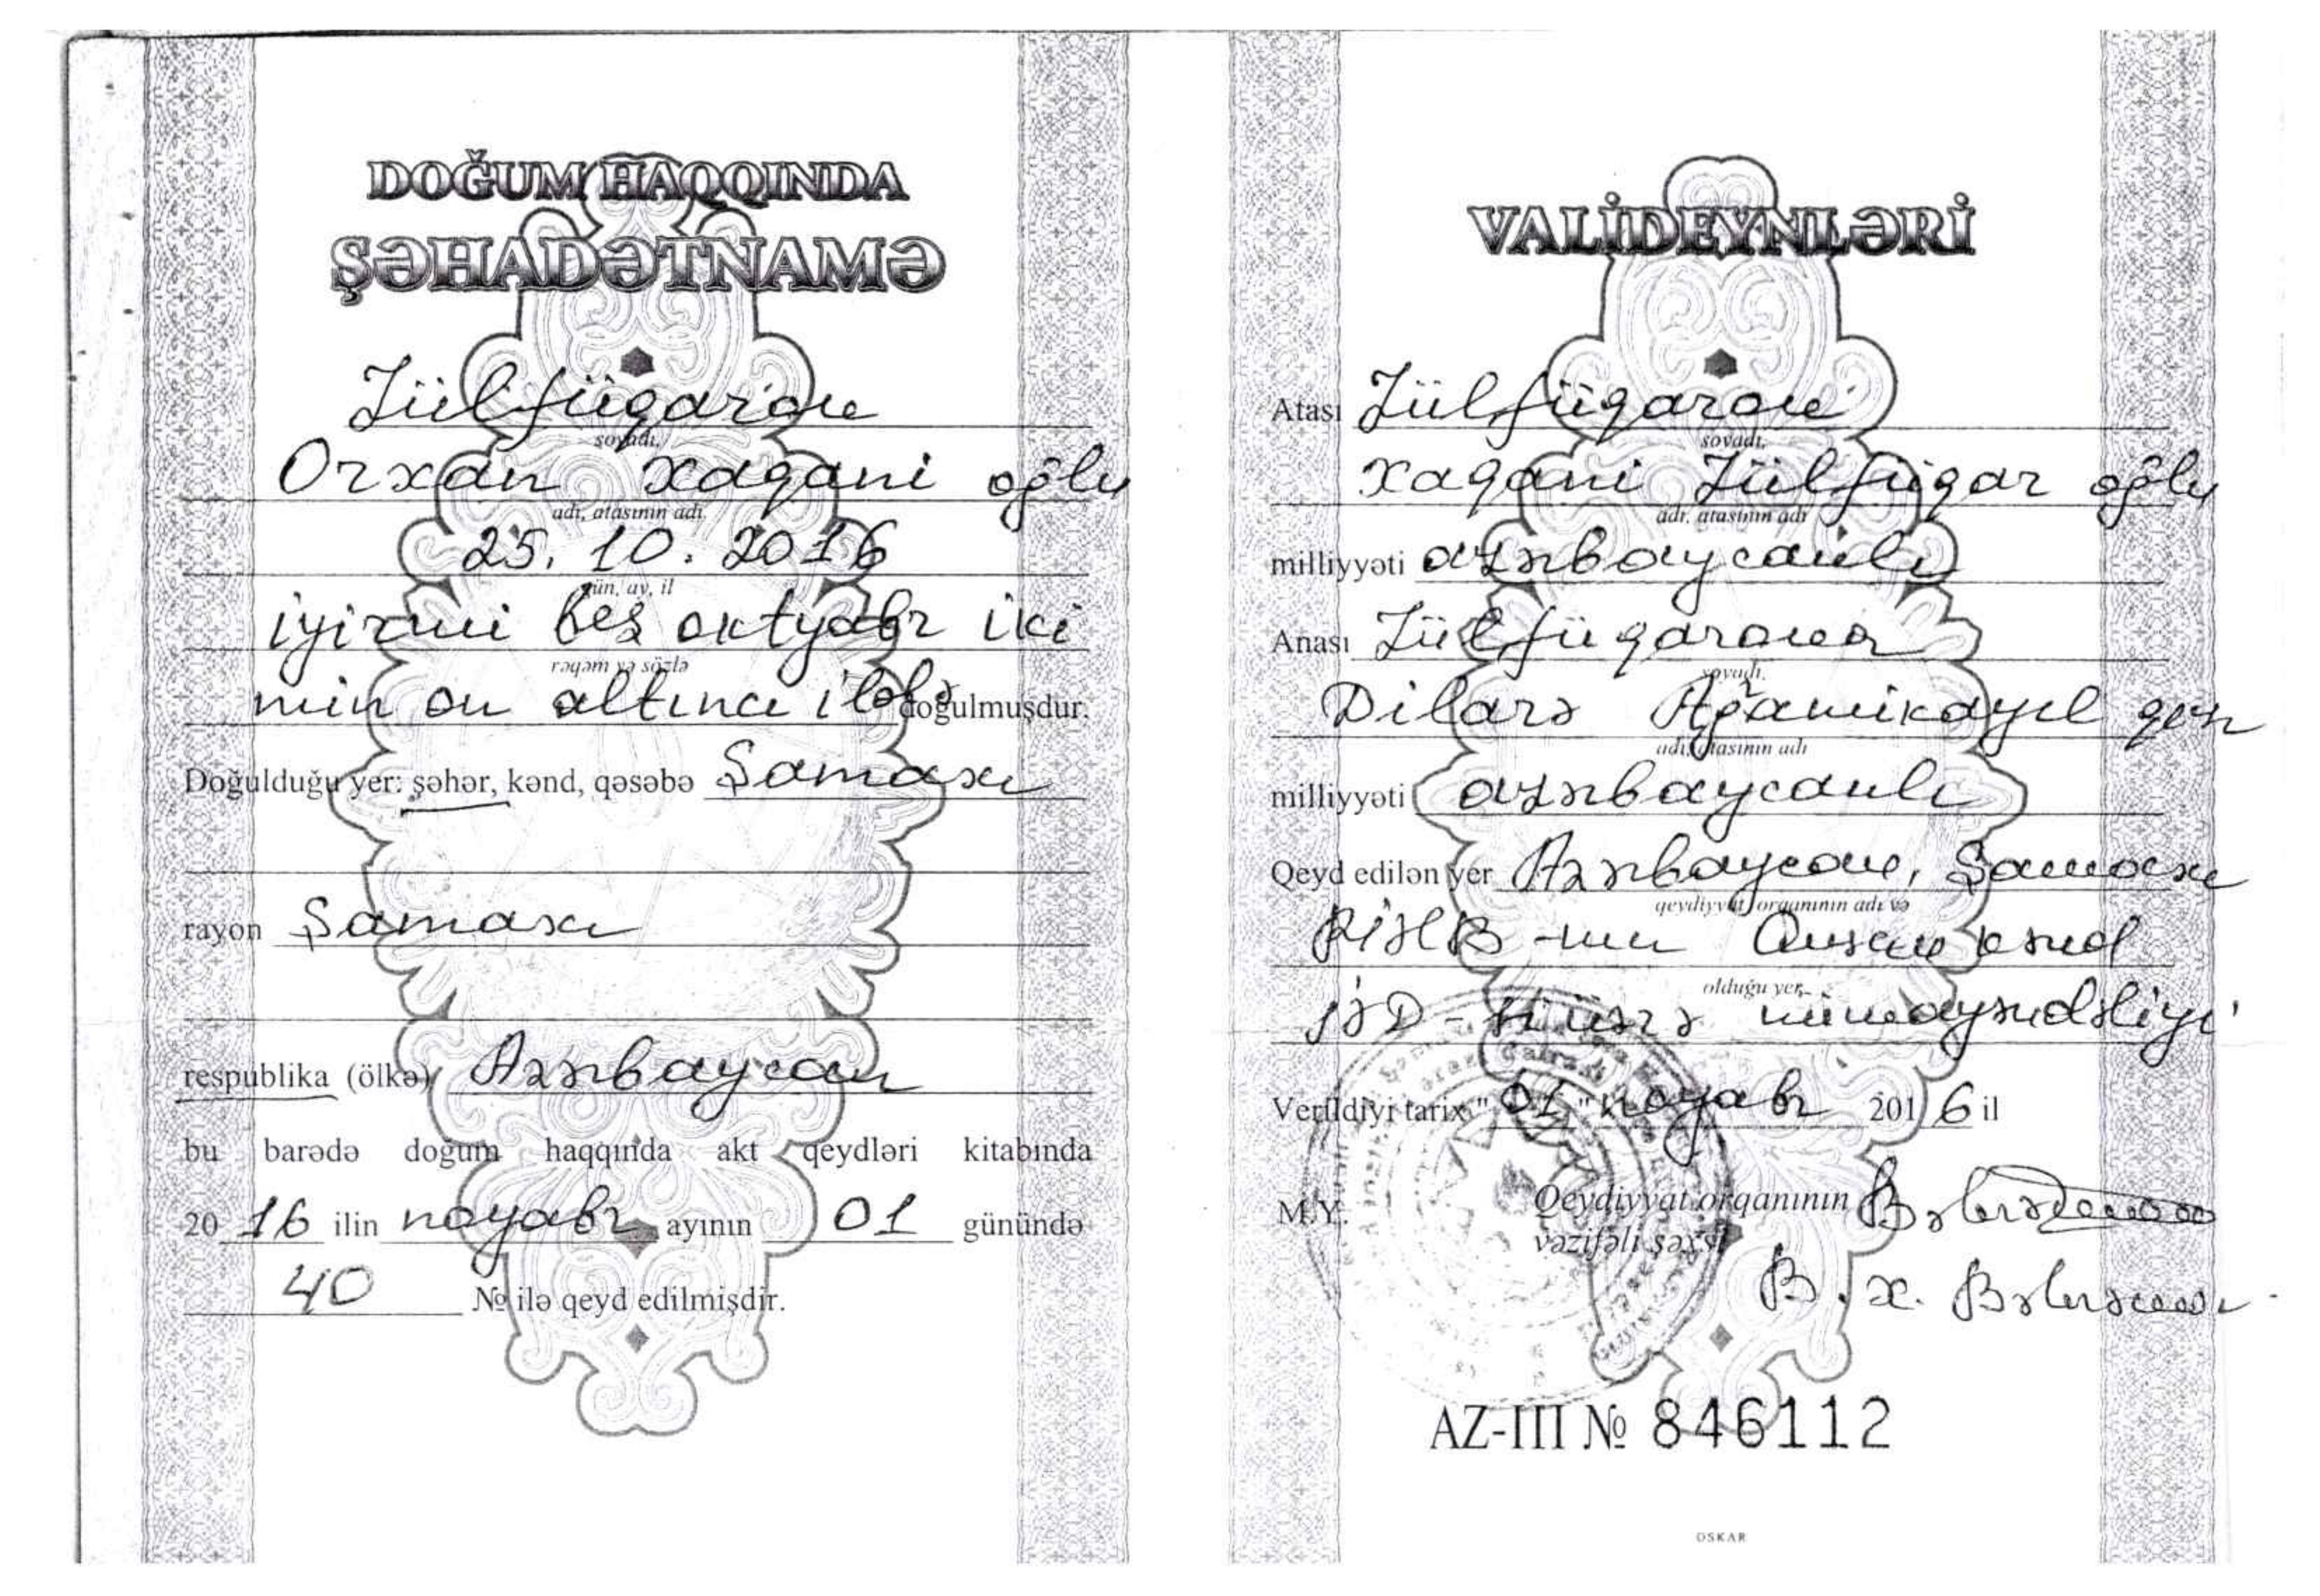 DOĞUM HAQQINDA
ŞƏHADƏTNAMƏ
Zülfüqarov
soyadı,
Orxan Xaqani oğlu
adı, atasının adı
25. 10. 2016
gün, ay, il
iyirmi beş oktyabr iki
rəqəm və sözlə
min on altıncı ildə doğulmuşdur.
Doğulduğu yer: şəhər, kənd, qəsəbə Şamaxı
rayon Şamaxı
respublika (ölkə) Azərbaycan
bu barədə doğum haqqında akt qeydləri kitabında
20 16 ilin noyabr ayının 01 günündə
40 № ilə qeyd edilmişdir.
VALİDEYNLƏRİ
Atası Zülfüqarov
soyadı,
Xaqani Zülfüqar oğlu
adı, atasının adı
milliyyəti azərbaycanlı
Anası Zülfüqarova
soyadı,
Dilarə Ağamikayıl qızı
adı, atasının adı
milliyyəti azərbaycanlı
Qeyd edilən yer Azərbaycan, Şamaxı
qeydiyyat orqanının adı və
RİHB-nın kənd
olduğu yer,
üzrə nümayəndəliyi
Verildiyi tarix "01" noyabr 2016 il
M.Y. Qeydiyyat orqanının
vəzifəli şəxsi
B. X.
AZ-III № 846112
OSKAR